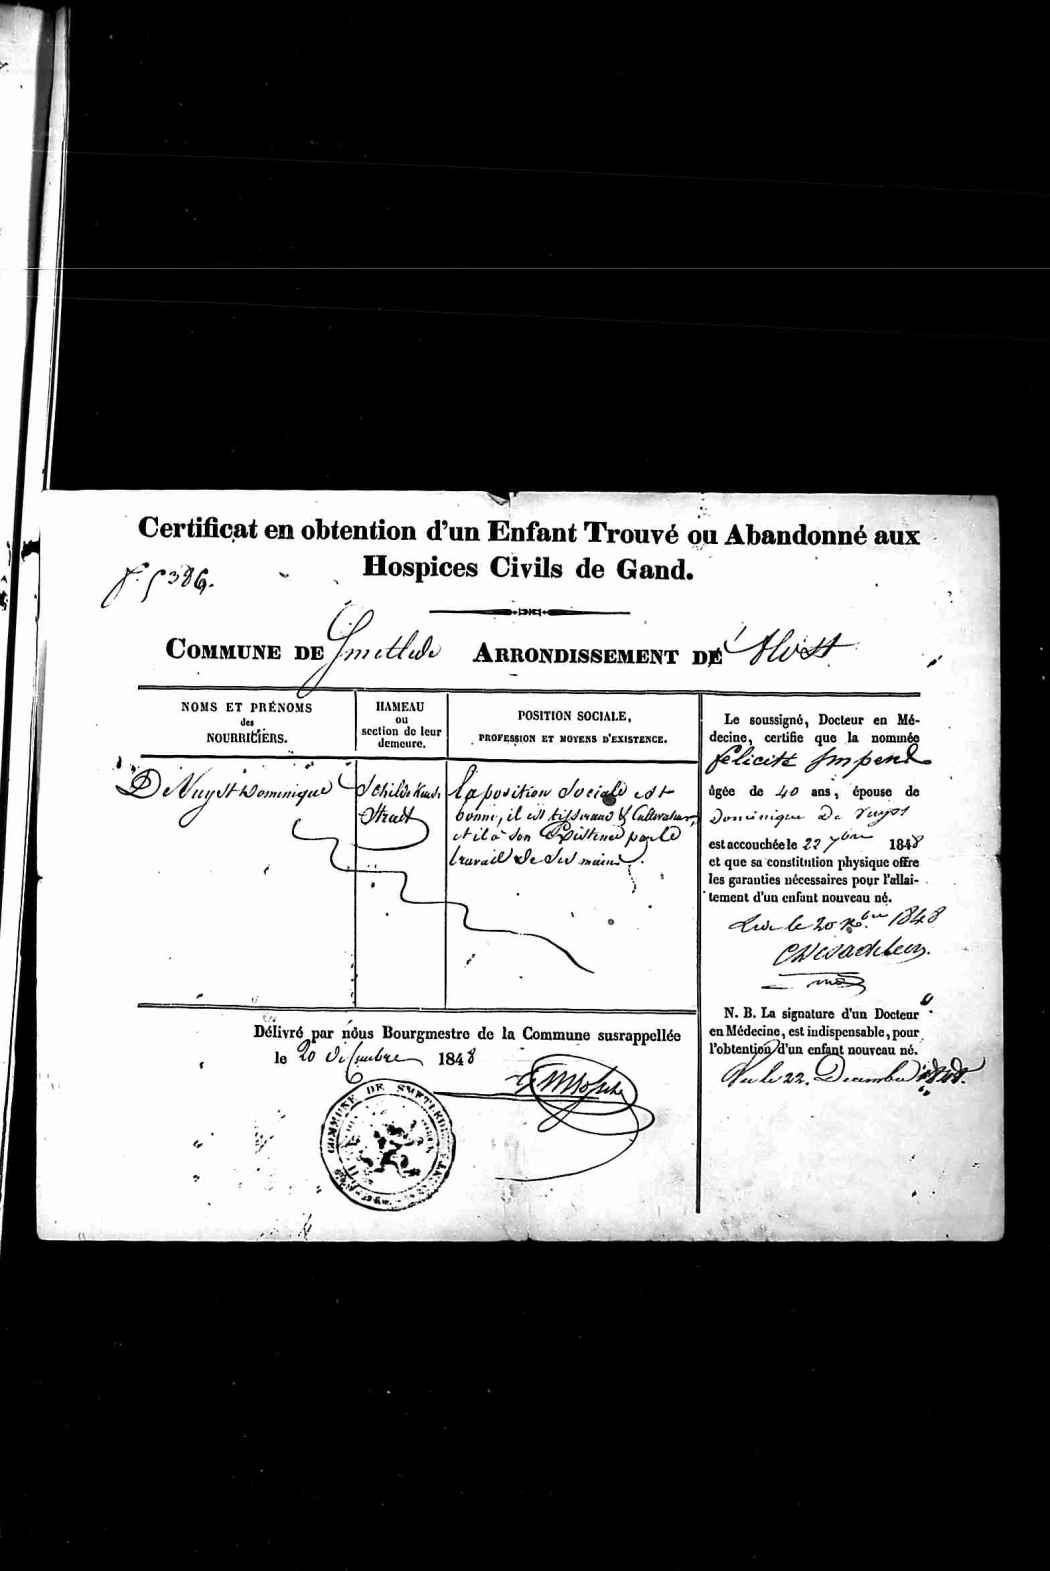 Certificat en obtention d'un Enfant Trouvé ou Abandonné aux
Hospices Civils de Gand.
5386.
COMMUNE DE Smetlede ARRONDISSEMENT DE Alost
NOMS ET PRÉNOMS
des
NOURRICIERS.
HAMEAU
ou
section de leur
demeure.
POSITION SOCIALE,
PROFESSION ET MOYENS D'EXISTENCE.
De Vuyst Dominique
Straet
La position Sociale est
bonne, il est tisserand & Cultivateur,
et il a son Existence par le
travail de ses mains.
Le soussigné, Docteur en Mé-
decine, certifie que la nommée
felicité
âgée de 40 ans, épouse de
Dominique De Vuyst
est accouchée le 22 7bre 1848
et que sa constitution physique offre
les garanties nécessaires pour l'allai-
tement d'un enfant nouveau né.
le 20 Xbre 1848
N. B. La signature d'un Docteur
en Médecine, est indispensable, pour
l'obtention d'un enfant nouveau né.
Vu le 22. Decembre 1848.
Délivré par nous Bourgmestre de la Commune susrappellée
le 20 décembre 1848
COMMUNE DE SMETLEDE